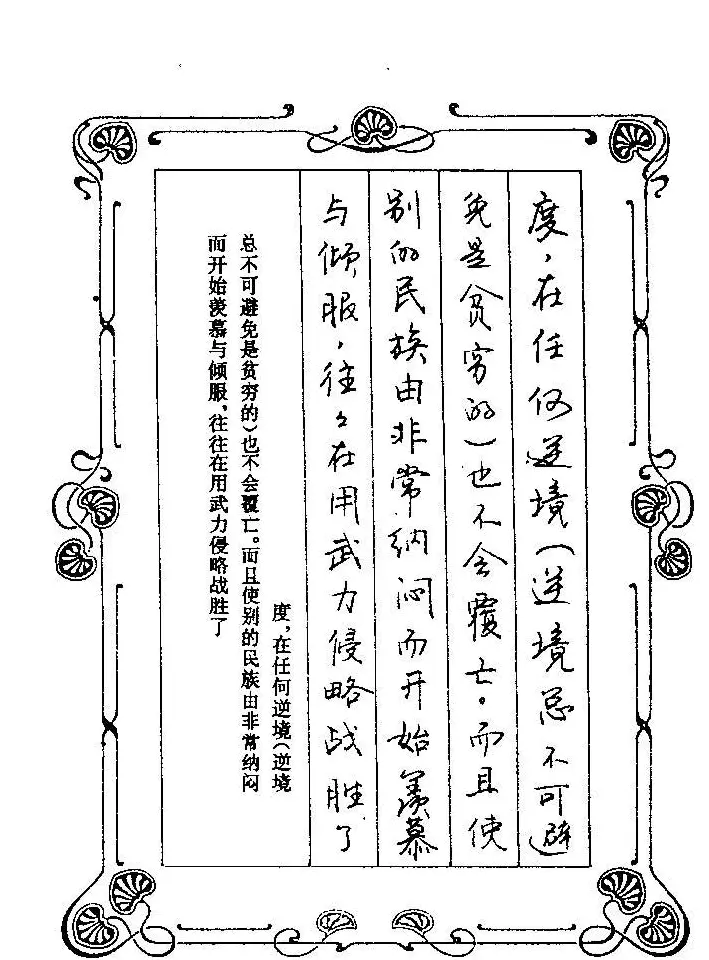 度，在任何逆境（逆境总不可避
免是贫穷的）也不会覆亡。而且使
别的民族由非常纳闷而开始羡慕
与倾服，往々在用武力侵略战胜了
度，在任何逆境（逆境
总不可避免是贫穷的）也不会覆亡。而且使别的民族由非常纳闷
而开始羡慕与倾服，往往在用武力侵略战胜了